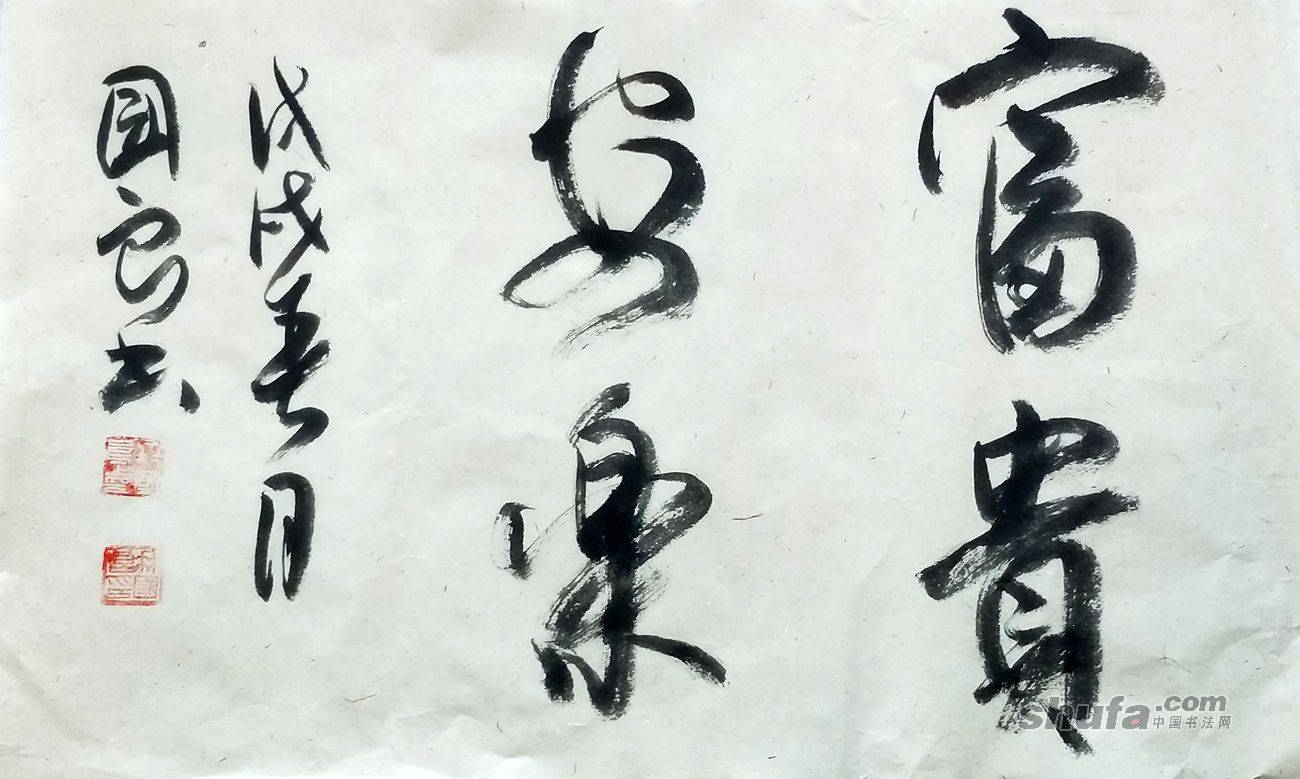 富貴
安樂
戊戌春月
國良书
shufa.com
中国书法网